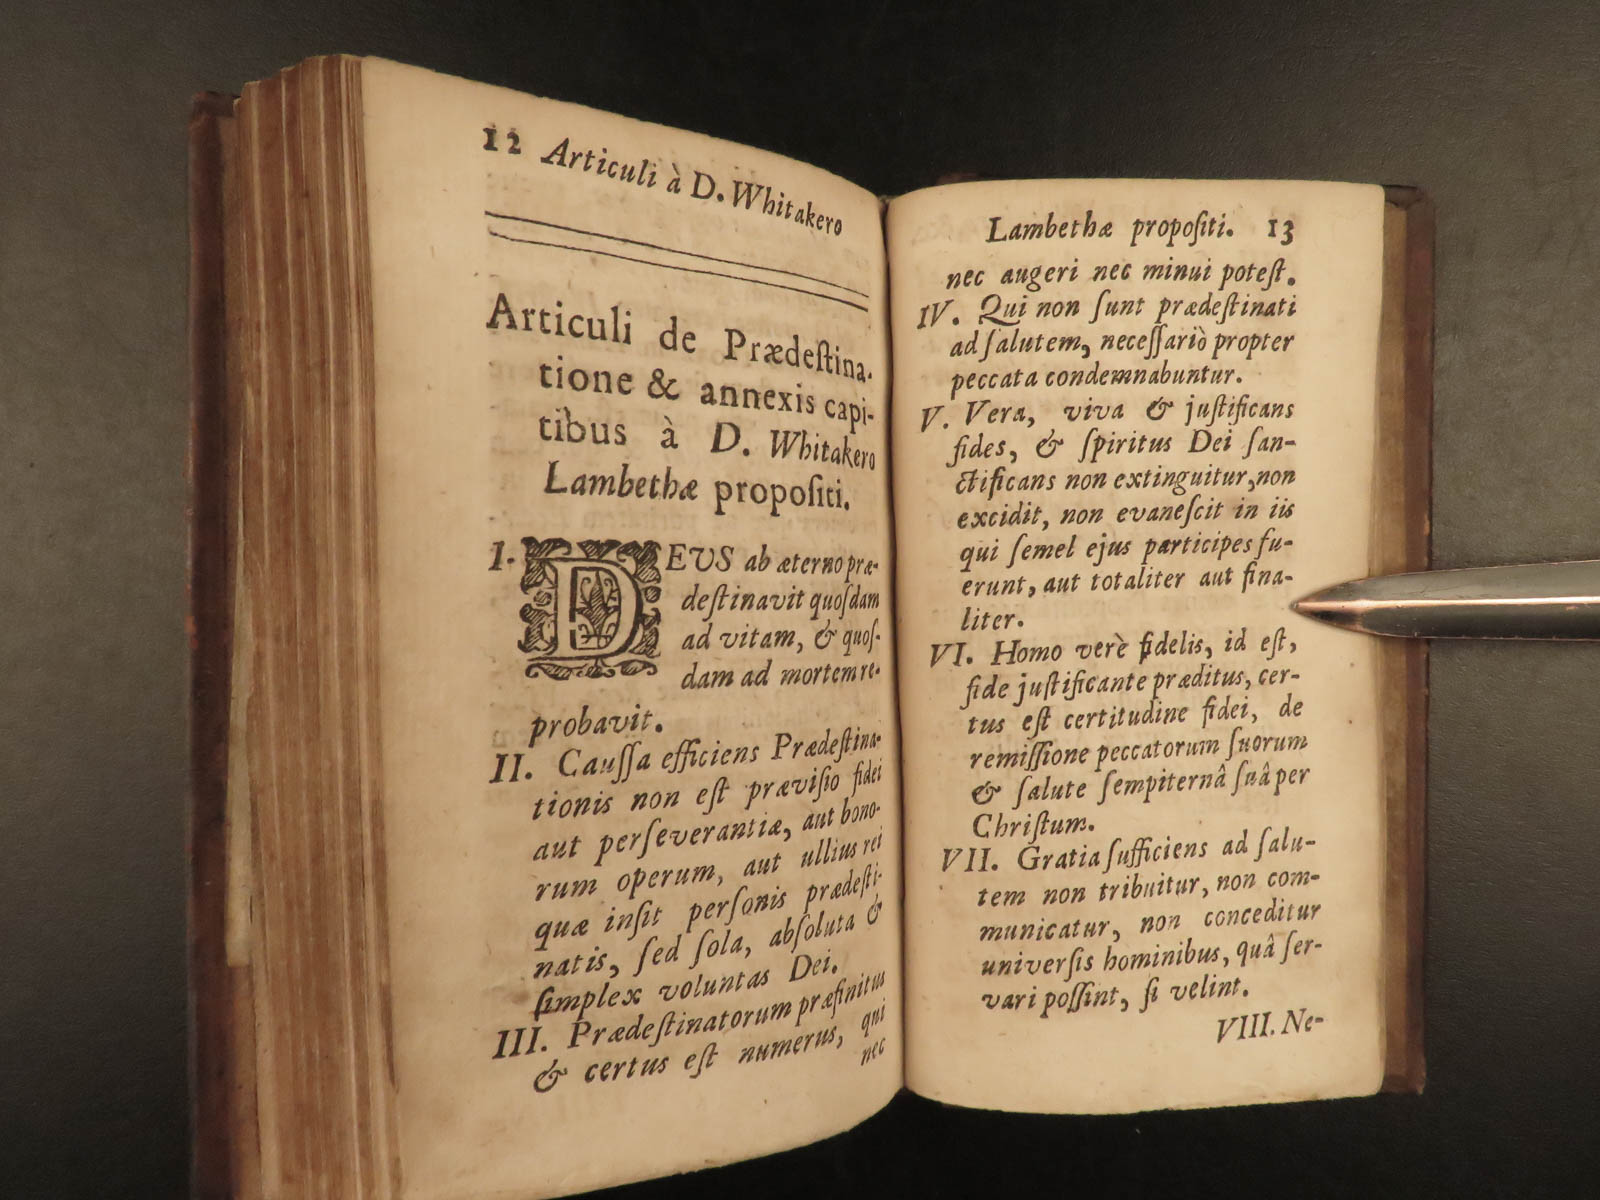 12 Articuli à D. Whitakero
Articuli de Prædeſtina-
tione & annexis capi-
tibus à D. Whitakero
Lambethæ propoſiti.
I. DEVS ab æterno præ-
deſtinavit quoſdam
ad vitam, & quoſ-
dam ad mortem re-
probavit.
II. Cauſſa efficiens Prædeſtina-
tionis non eſt præviſio fidei
aut perſeverantiæ, aut bono-
rum operum, aut ullius rei
quæ inſit perſonis prædeſti-
natis, ſed ſola, abſoluta &
ſimplex voluntas Dei.
III. Prædeſtinatorum præfinitus
& certus eſt numerus, qui
nec
Lambethæ propoſiti. 13
nec augeri nec minui poteſt.
IV. Qui non ſunt prædeſtinati
ad ſalutem, neceſſariò propter
peccata condemnabuntur.
V. Vera, viva & juſtificans
fides, & ſpiritus Dei ſan-
ctificans non extinguitur, non
excidit, non evaneſcit in iis
qui ſemel ejus participes fu-
erunt, aut totaliter aut fina-
liter.
VI. Homo verè fidelis, id eſt,
fide juſtificante præditus, cer-
tus eſt certitudine fidei, de
remiſſione peccatorum ſuorum
& ſalute ſempiternâ ſuâ per
Chriſtum.
VII. Gratia ſufficiens ad ſalu-
tem non tribuitur, non com-
municatur, non conceditur
univerſis hominibus, quâ ſer-
vari poſſint, ſi velint.
VIII. Ne-